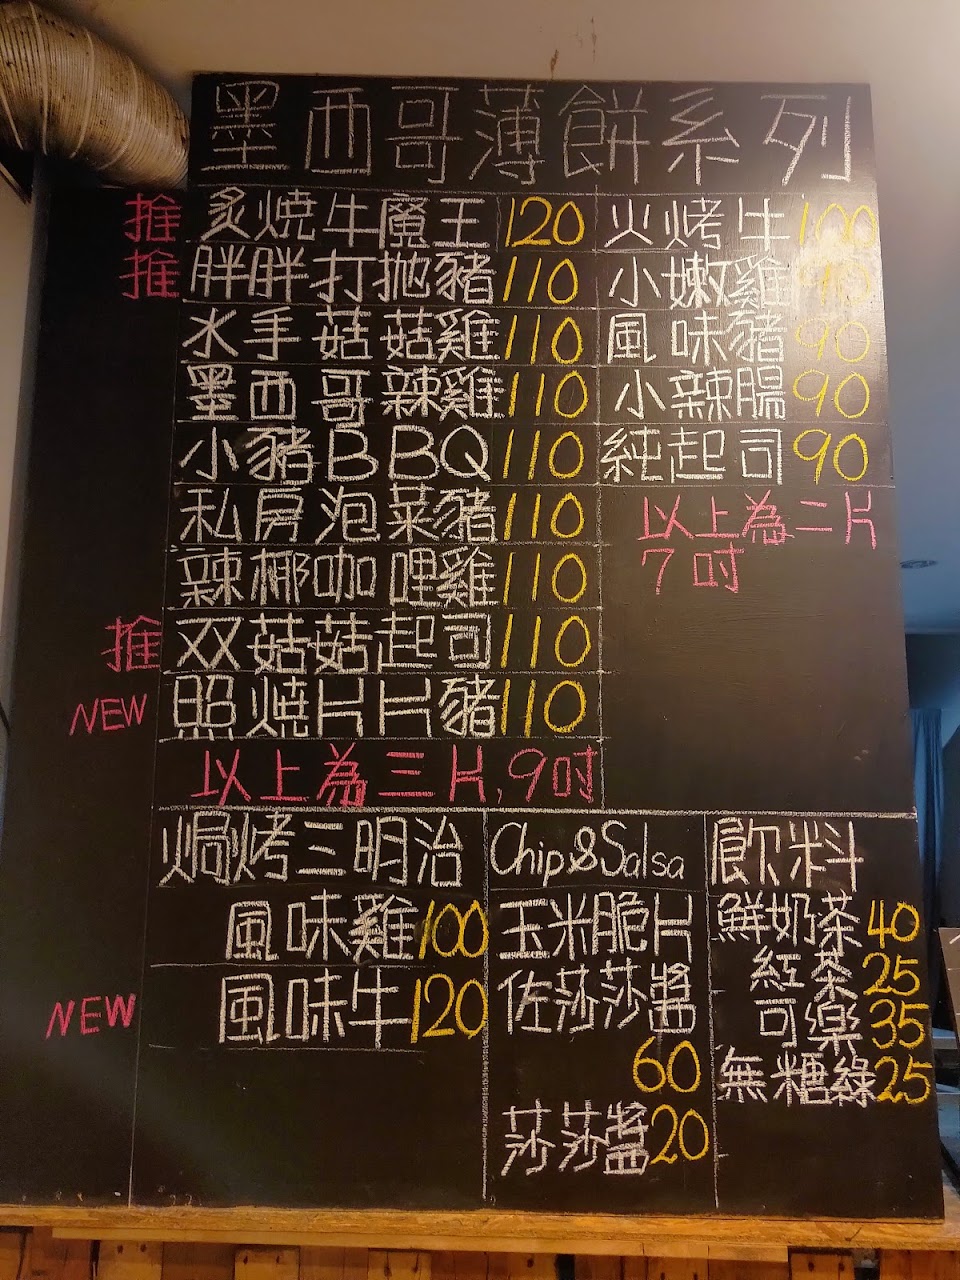 墨西哥薄餅系列
推 炙燒牛魔王 120
推 胖胖打拋豬 110
水手菇菇雞 110
墨西哥辣雞 110
小豬BBQ 110
私房泡菜豬 110
辣椰咖哩雞 110
推 双菇菇起司 110
NEW 照燒片片豬 110
以上為三片,9吋
火烤牛 100
小嫩雞 90
風味豬 90
小辣腸 90
純起司 90
以上為二片
7吋
焗烤三明治
風味雞 100
NEW 風味牛 120
Chip&Salsa
玉米脆片
佐莎莎醬
60
莎莎醬 20
飲料
鮮奶茶 40
紅茶 25
可樂 35
無糖綠 25